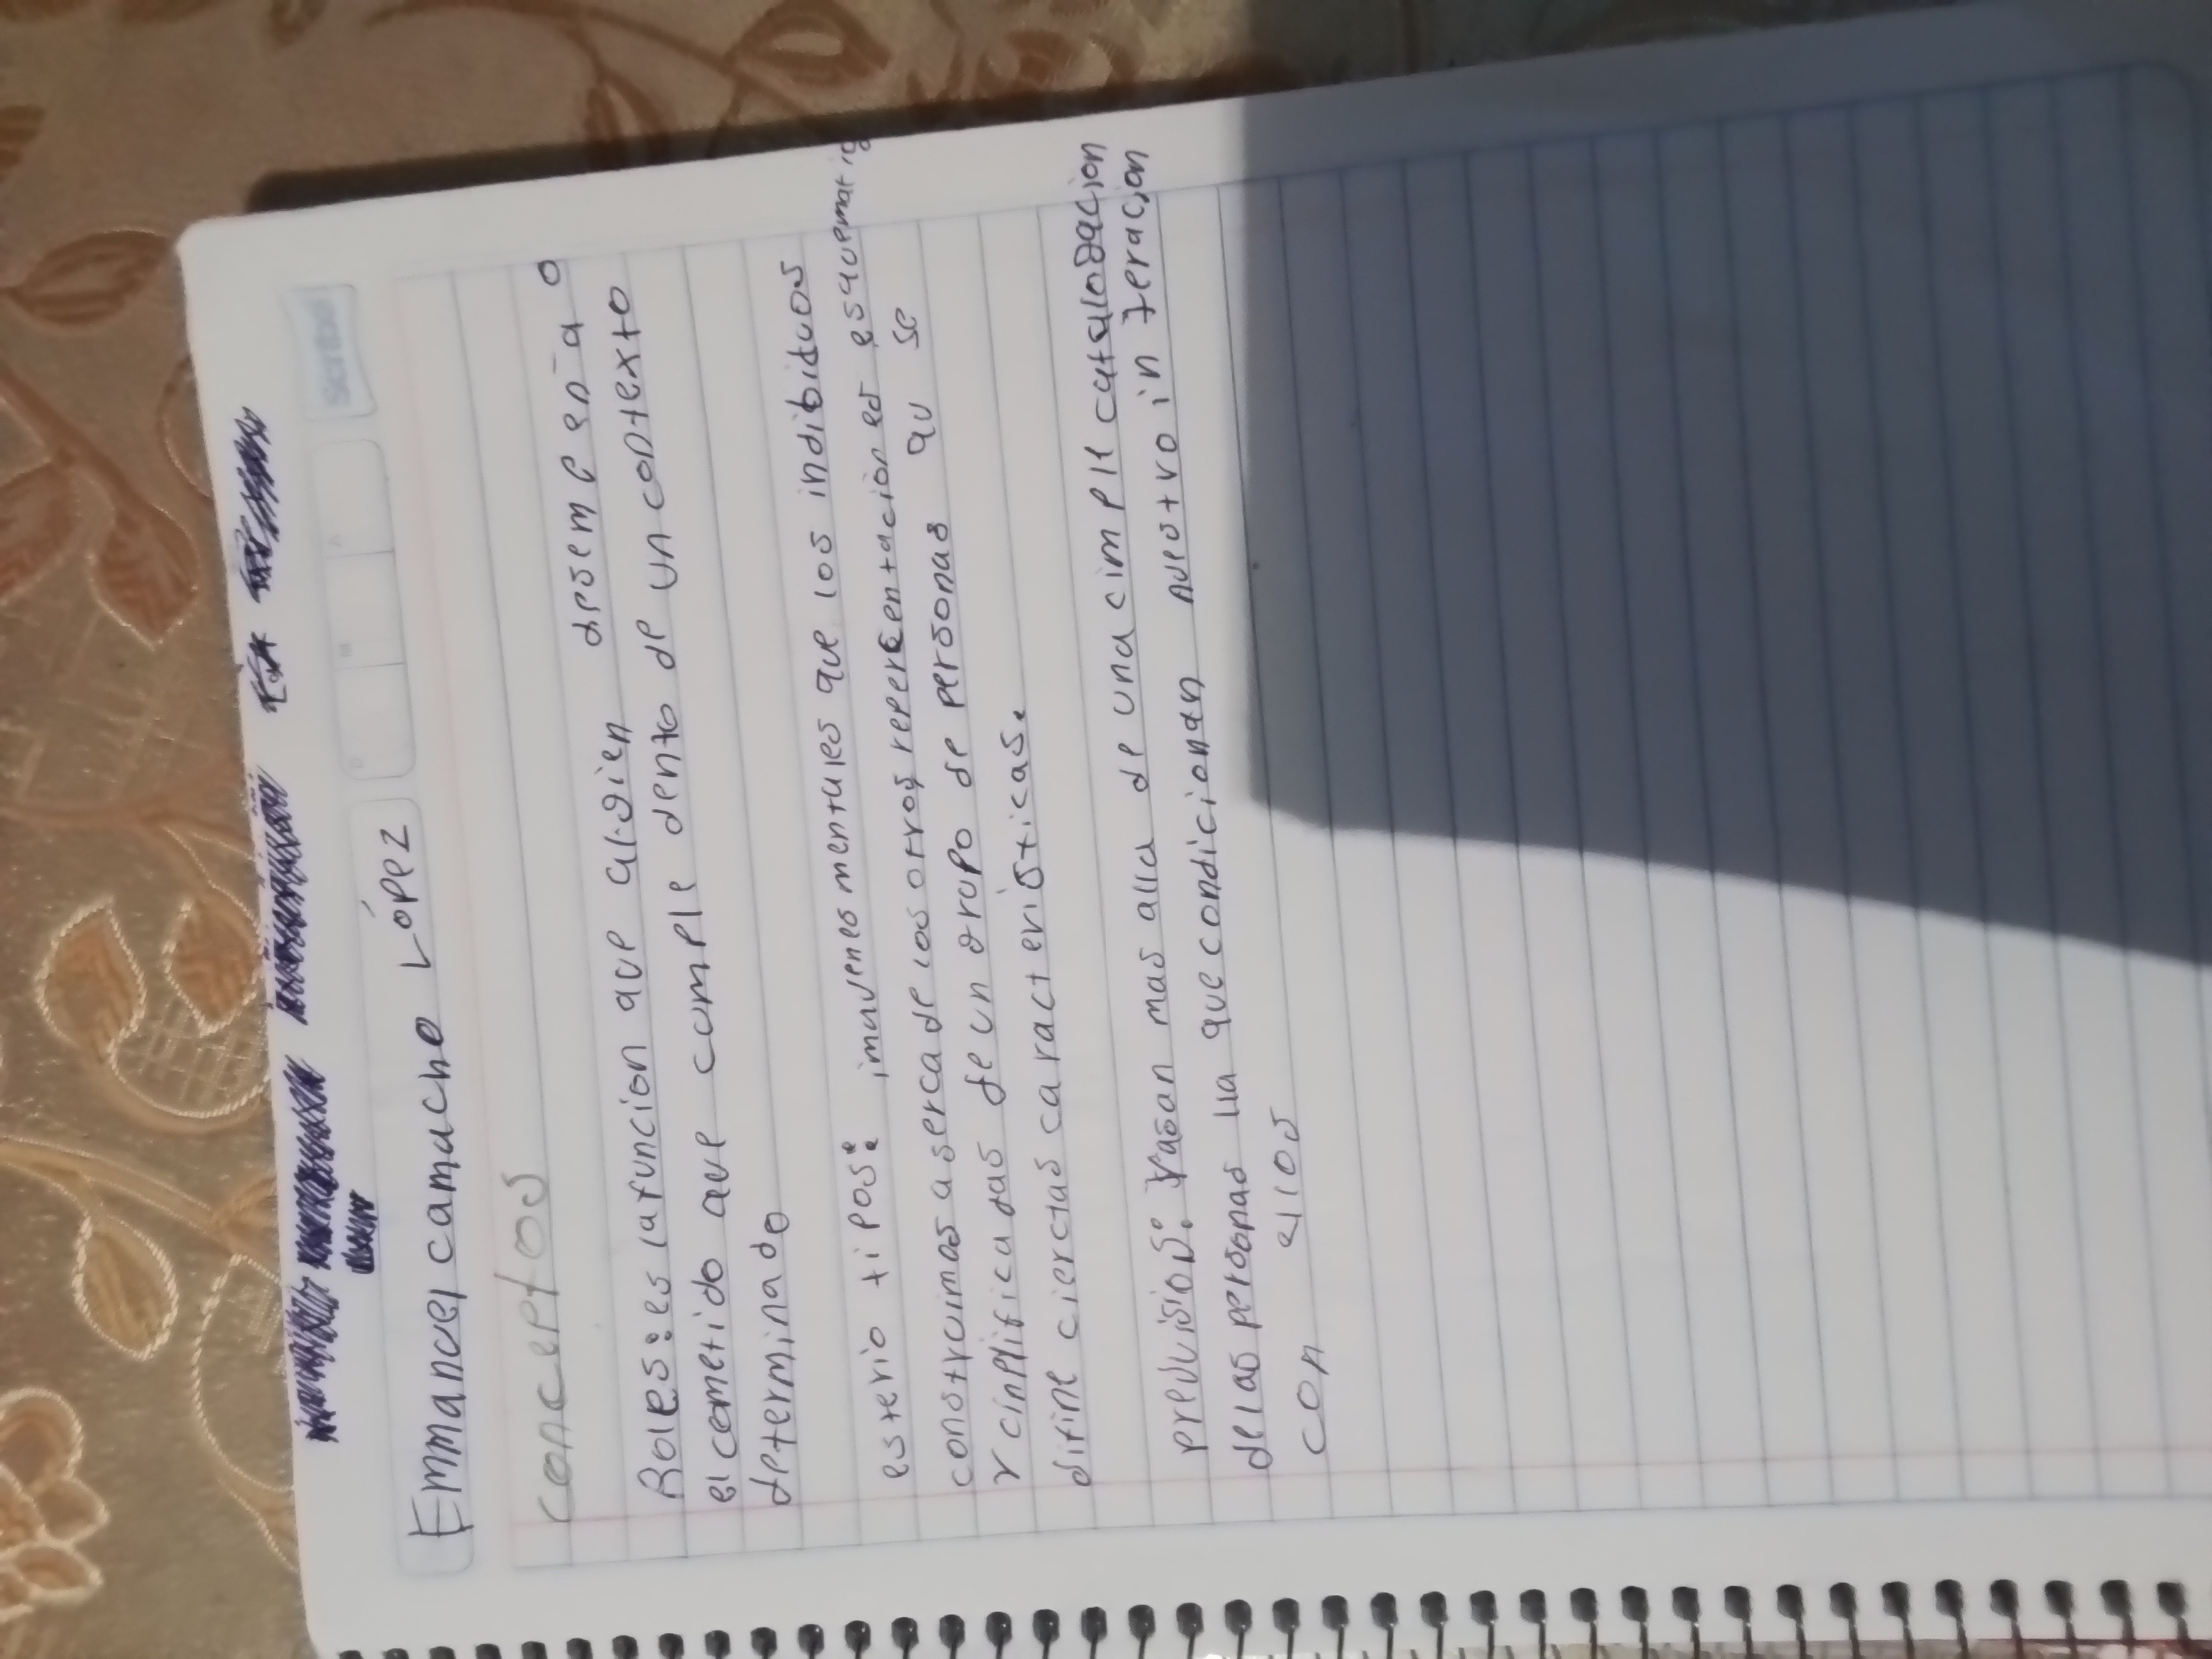 Scribe
D M A
Emmanuel camacho López
conceptos
Roles: es la funcion que alguien desempeña o
el cometido que cumple dento de un contexto
determinado
esterio tipos: imauenes mentales que los indibiduos
construimos a serca de los otros reperсentaciones esquematic
y cinplificadas de un grupo de personas qu se
difine ciertas caracteristicas.
preuuisios: vasan mas alla de una cimple catalogacion
de las personas lla que condicionan nuestro interacion
con ellos